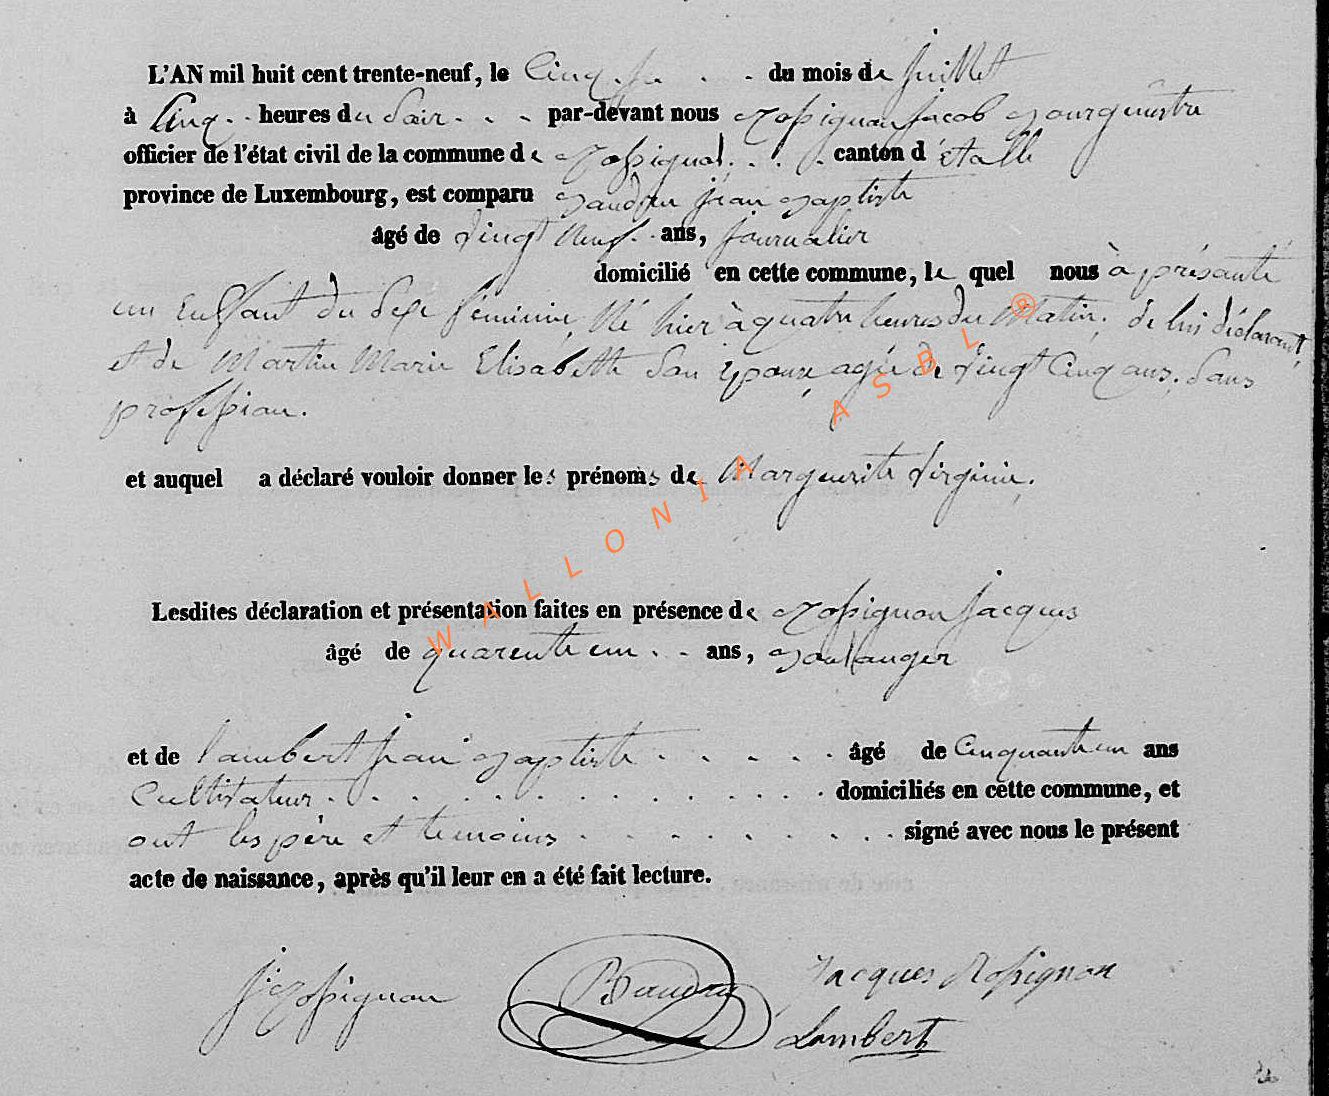 L'AN mil huit cent trente-neuf, le Cinq . . . du mois de juillet
à Cinq . . heures du Soir . . . par-devant nous Rossignon Jacob Bourguestre
officier de l'état civil de la commune de Rossignol . . . . canton d'étalle
province de Luxembourg, est comparu Baudru jean Baptiste
âgé de vingt neuf . . ans, journalier
domicilié en cette commune, le quel nous à présanté
un Enfant du Sexe féminin, Né hier à quatre heures du Matin, de lui déclarant
et de Martin Marie Elisabette Son Epouse, agée de vingt Cinq ans, Sans
profession.
et auquel a déclaré vouloir donner les prénoms de Marguerite Virginie.
Lesdites déclaration et présentation faites en présence de Rossignon Jacques
âgé de quarente un . . ans, Boulanger
et de lambert jean Baptiste . . . . . âgé de Cinquante un ans
Cultivateur . . . . . . . . . . . . domiciliés en cette commune, et
ont les père et témoins . . . . . . . . signé avec nous le présent
acte de naissance, après qu'il leur en a été fait lecture.
J. Rossignon Baudru Jacques Rossignon
Lambert
WALLONIA ASBL ®